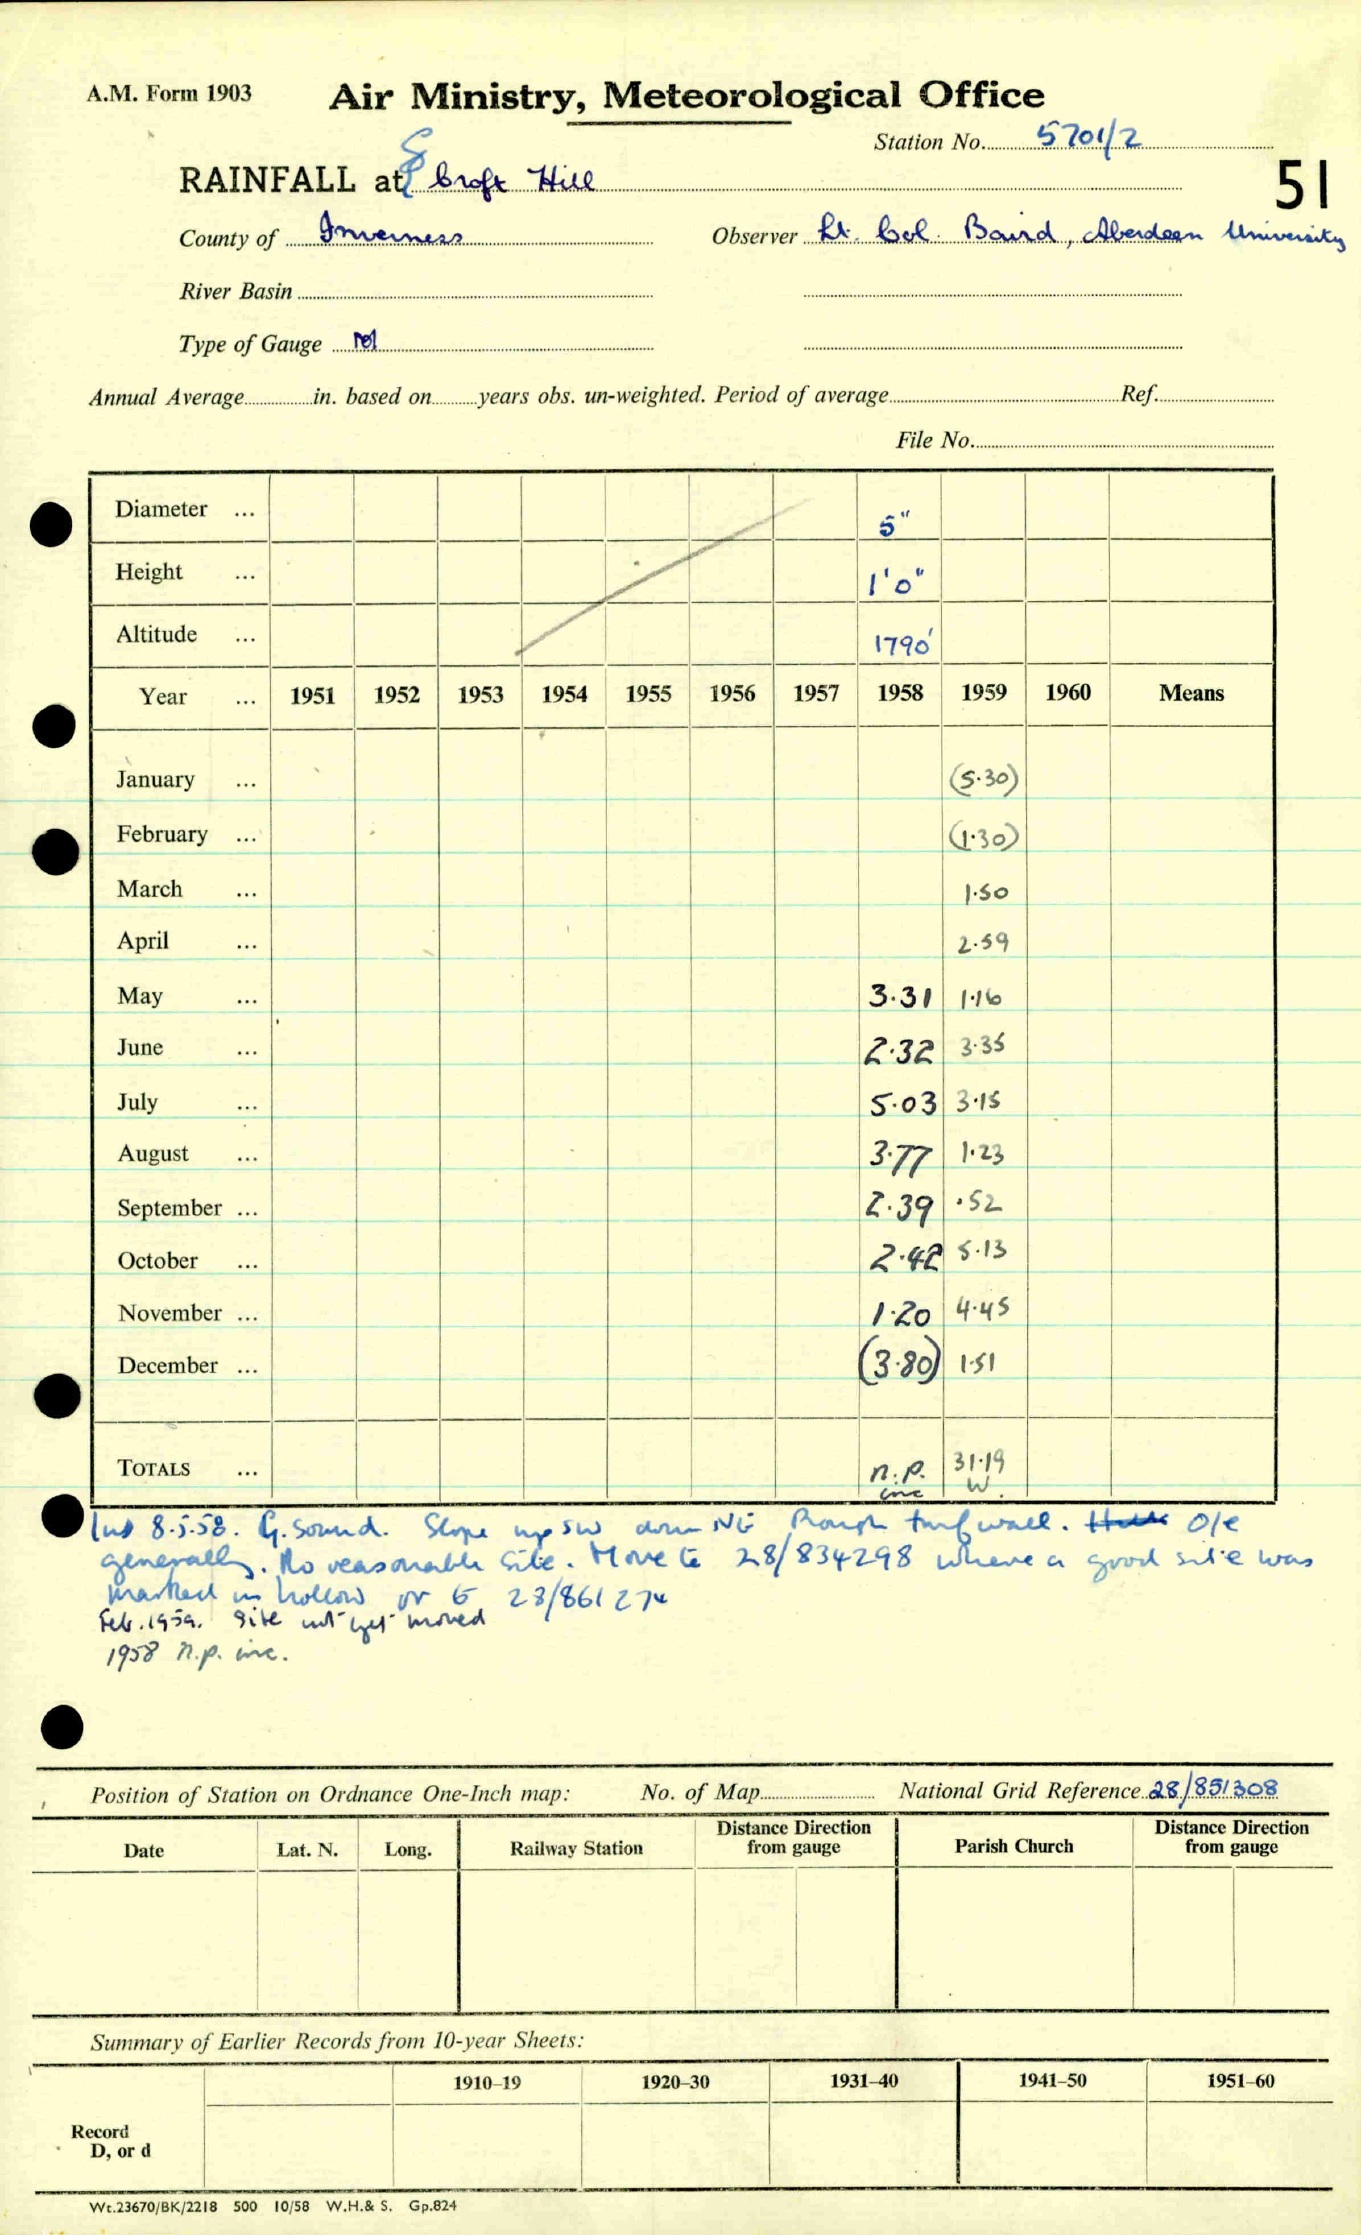 A.M. Form 1903
Air Ministry, Meteorological Office
Station No. 5701/2
51
RAINFALL at Croft Hill
County of Inverness Observer Lt. Col. Baird, Aberdeen University
River Basin
Type of Gauge
Annual Average in. based on years obs. un-weighted. Period of average Ref.
File No.
Diameter ... 5"
Height ... 1'0"
Altitude ... 1790'
Year ... 1951 1952 1953 1954 1955 1956 1957 1958 1959 1960 Means
January ... (5·30)
February ... (1·30)
March ... 1·50
April ... 2·59
May ... 3·31 1·16
June ... 2·32 3·35
July ... 5·03 3·15
August ... 3·77 1·23
September ... 2·39 ·52
October ... 2·42 5·13
November ... 1·20 4·45
December ... (3·80) 1·51
TOTALS ... n.p. 31·19
inc W.
8.5.58. G. Sound. Slope up SW down NE Rough turf wall. O/e
generally. No reasonable site. Move to 28/834298 where a good site was
marked in hollow or to 28/861274
Feb. 1959. Site not yet moved
1958 n.p. inc.
Position of Station on Ordnance One-Inch map: No. of Map National Grid Reference 28/851308
Date Lat. N. Long. Railway Station Distance Direction from gauge Parish Church Distance Direction from gauge
Summary of Earlier Records from 10-year Sheets:
1910–19 1920–30 1931–40 1941–50 1951–60
Record
D, or d
Wt.23670/BK/2218 500 10/58 W.H.& S. Gp.824